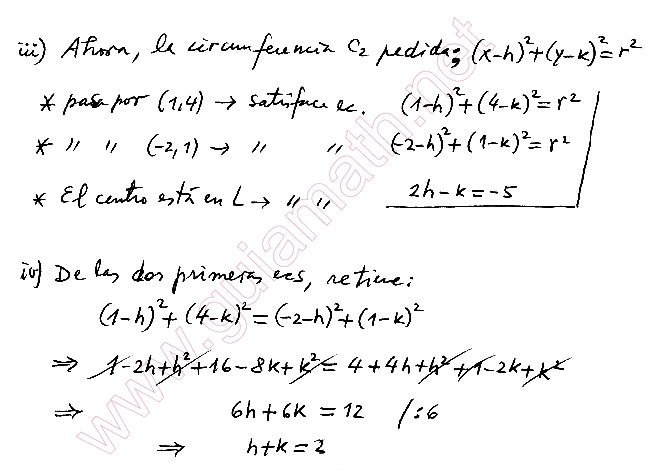 iii) Ahora, la circunferencia C₂ pedida; (x-h)²+(y-k)²=r²
* pasa por (1,4) → satisface ec. (1-h)²+(4-k)²=r²
* " " (-2,1) → " " (-2-h)²+(1-k)²=r²
* El centro está en L → " " 2h-k=-5
iv) De las dos primeras ecs, se tiene:
(1-h)²+(4-k)²=(-2-h)²+(1-k)²
⇒ 1-2h+h²+16-8k+k²=4+4h+h²+1-2k+k²
⇒ 6h+6k=12 /:6
⇒ h+k=2
www.guiamath.net